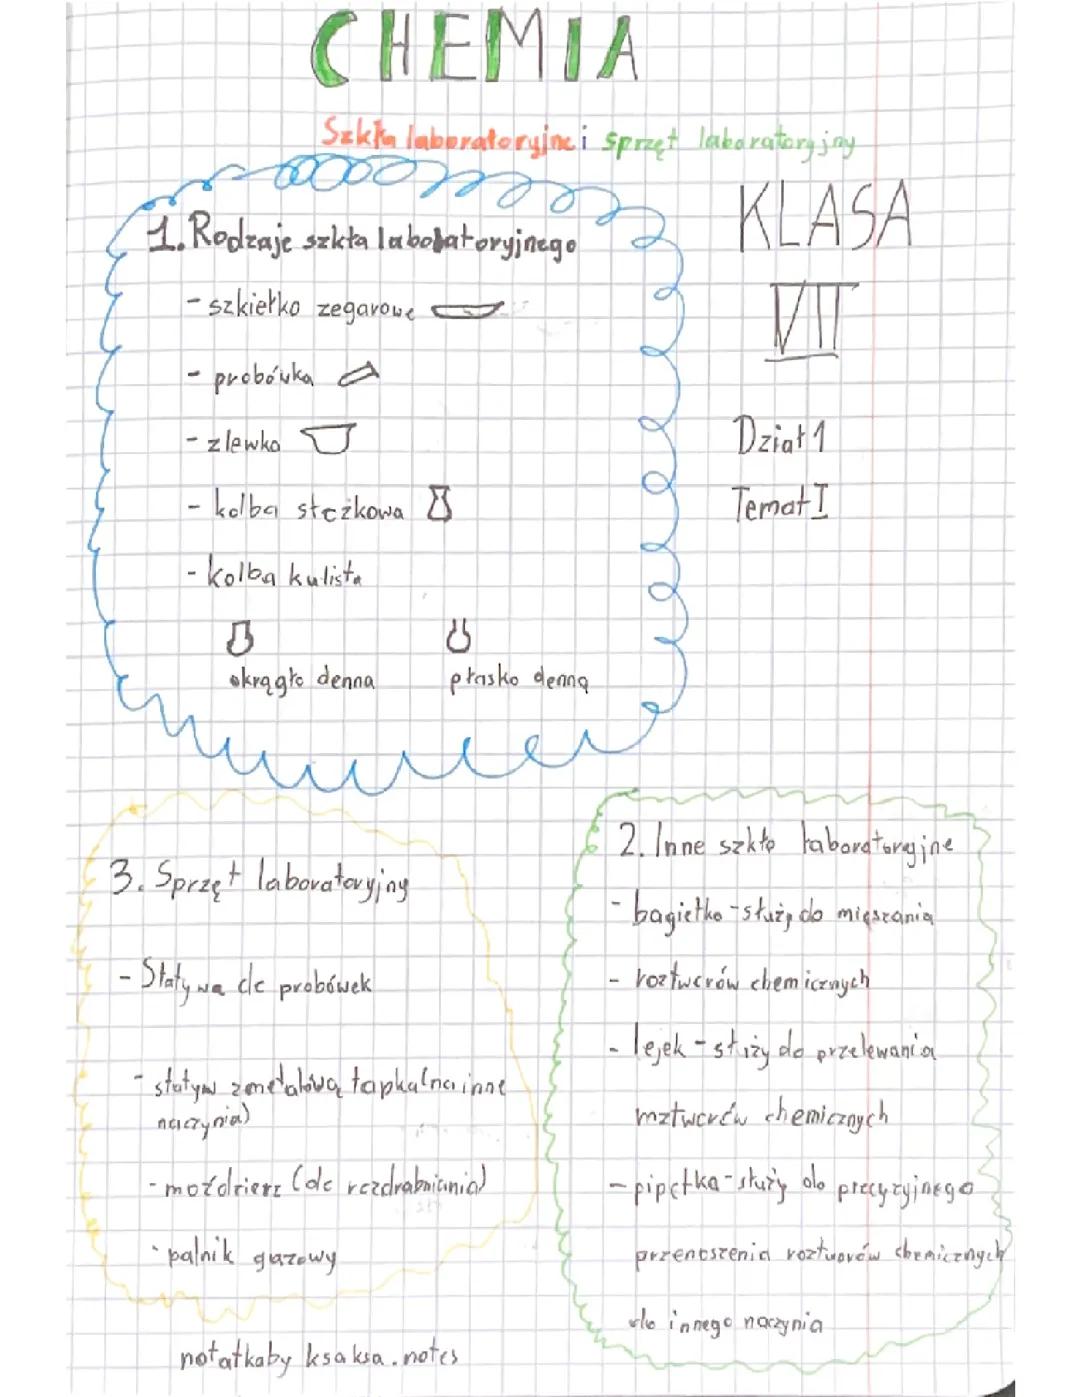 CHEMIA
Szkła laboratoryjne i sprzęt laboratoryjny
KLASA
VII
Dział 1
Temat I
1. Rodzaje szkła laboratoryjnego
- szkiełko zegarowe
- probówka
- zlewka
- kolba stożkowa
- kolba kulista
okrągło denna płasko denna
2. Inne szkło laboratoryjne
- bagietko - służy do mięszania
- roztworów chemicznych
- lejek - służy do przelewania
roztworów chemicznych
- pipetka - służy do precyzyjnego
przenoszenia roztworów chemicznych
do innego naczynia
3. Sprzęt laboratoryjny
- Statywa do probówek
- statyw z metalową łapką (na inne
naczynia)
- moździerz (do rozdrabniania)
- palnik gazowy
notatkaby ksaksa.notes